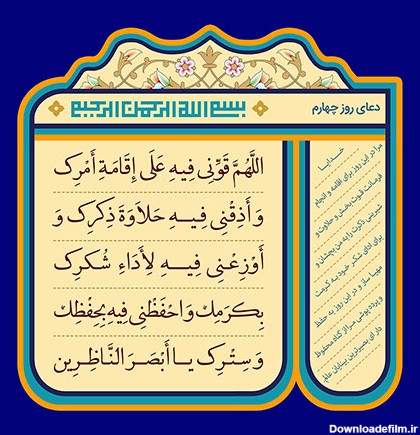 دعای روز چهارم
بسم الله الرحمن الرحیم
اللَّهُمَّ قَوِّنِي فِيهِ عَلَى إِقَامَةِ أَمْرِكَ
وَ أَذِقْنِي فِيهِ حَلَاوَةَ ذِكْرِكَ وَ
أَوْزِعْنِي فِيهِ لِأَدَاءِ شُكْرِكَ
بِكَرَمِكَ وَ احْفَظْنِي فِيهِ بِحِفْظِكَ
وَ سِتْرِكَ يَا أَبْصَرَ النَّاظِرِينَ
خدایا
مرا در این روز برای اقامه و انجام
فرمانت قوت بخش و حلاوت و
شیرینی ذکرت را به من بچشان و
برای ادای شکر خود به کرمت
مهیا ساز و در این روز به حفظ
و پرده‌پوشی سر از گناه محفوظ
دار ای بصیرترین بینایان عالم.
Downloadefilm.ir